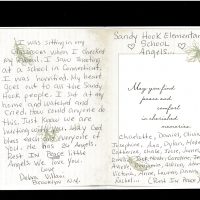 I was sitting in my
when I checked
my email. I saw shooting
at a school in Connecticut.
I was horrified. My heart
goes out to all the Sandy
Hook people. I sat at my
home and watched and
cried. How could anyone do
this. Just know we are
hurting with you. May God
bless each and everyone of
you. He has 26 Angels.
Rest In Peace little
Angels. We love you.
Love
Debra
Brooklyn
Sandy Hook Elementary
School
Angels...
May you find
peace and
comfort
in cherished
memories.
Charlotte, Daniel, Olivia,
Josephine, Ana, Dylan,
Catherine, Chase, Jesse, James,
Emilie, Jack, Noah, Caroline,
Victoria, Anne, Lauren,
Rachel... (Rest in Peace)